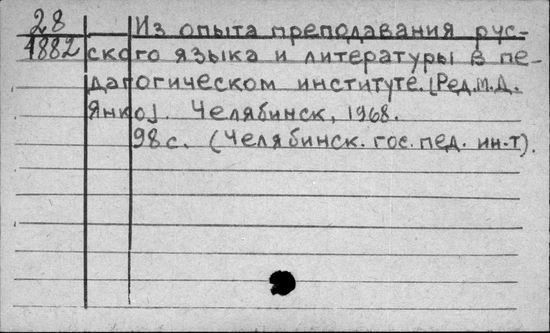 28 Из опыта преподавания рус-
4882 ского языка и литературы в пе-
дагогическом институте. [Ред. М.Д.
Янко]. Челябинск, 1968.
98 с. (Челябинск. гос. пед. ин-т).